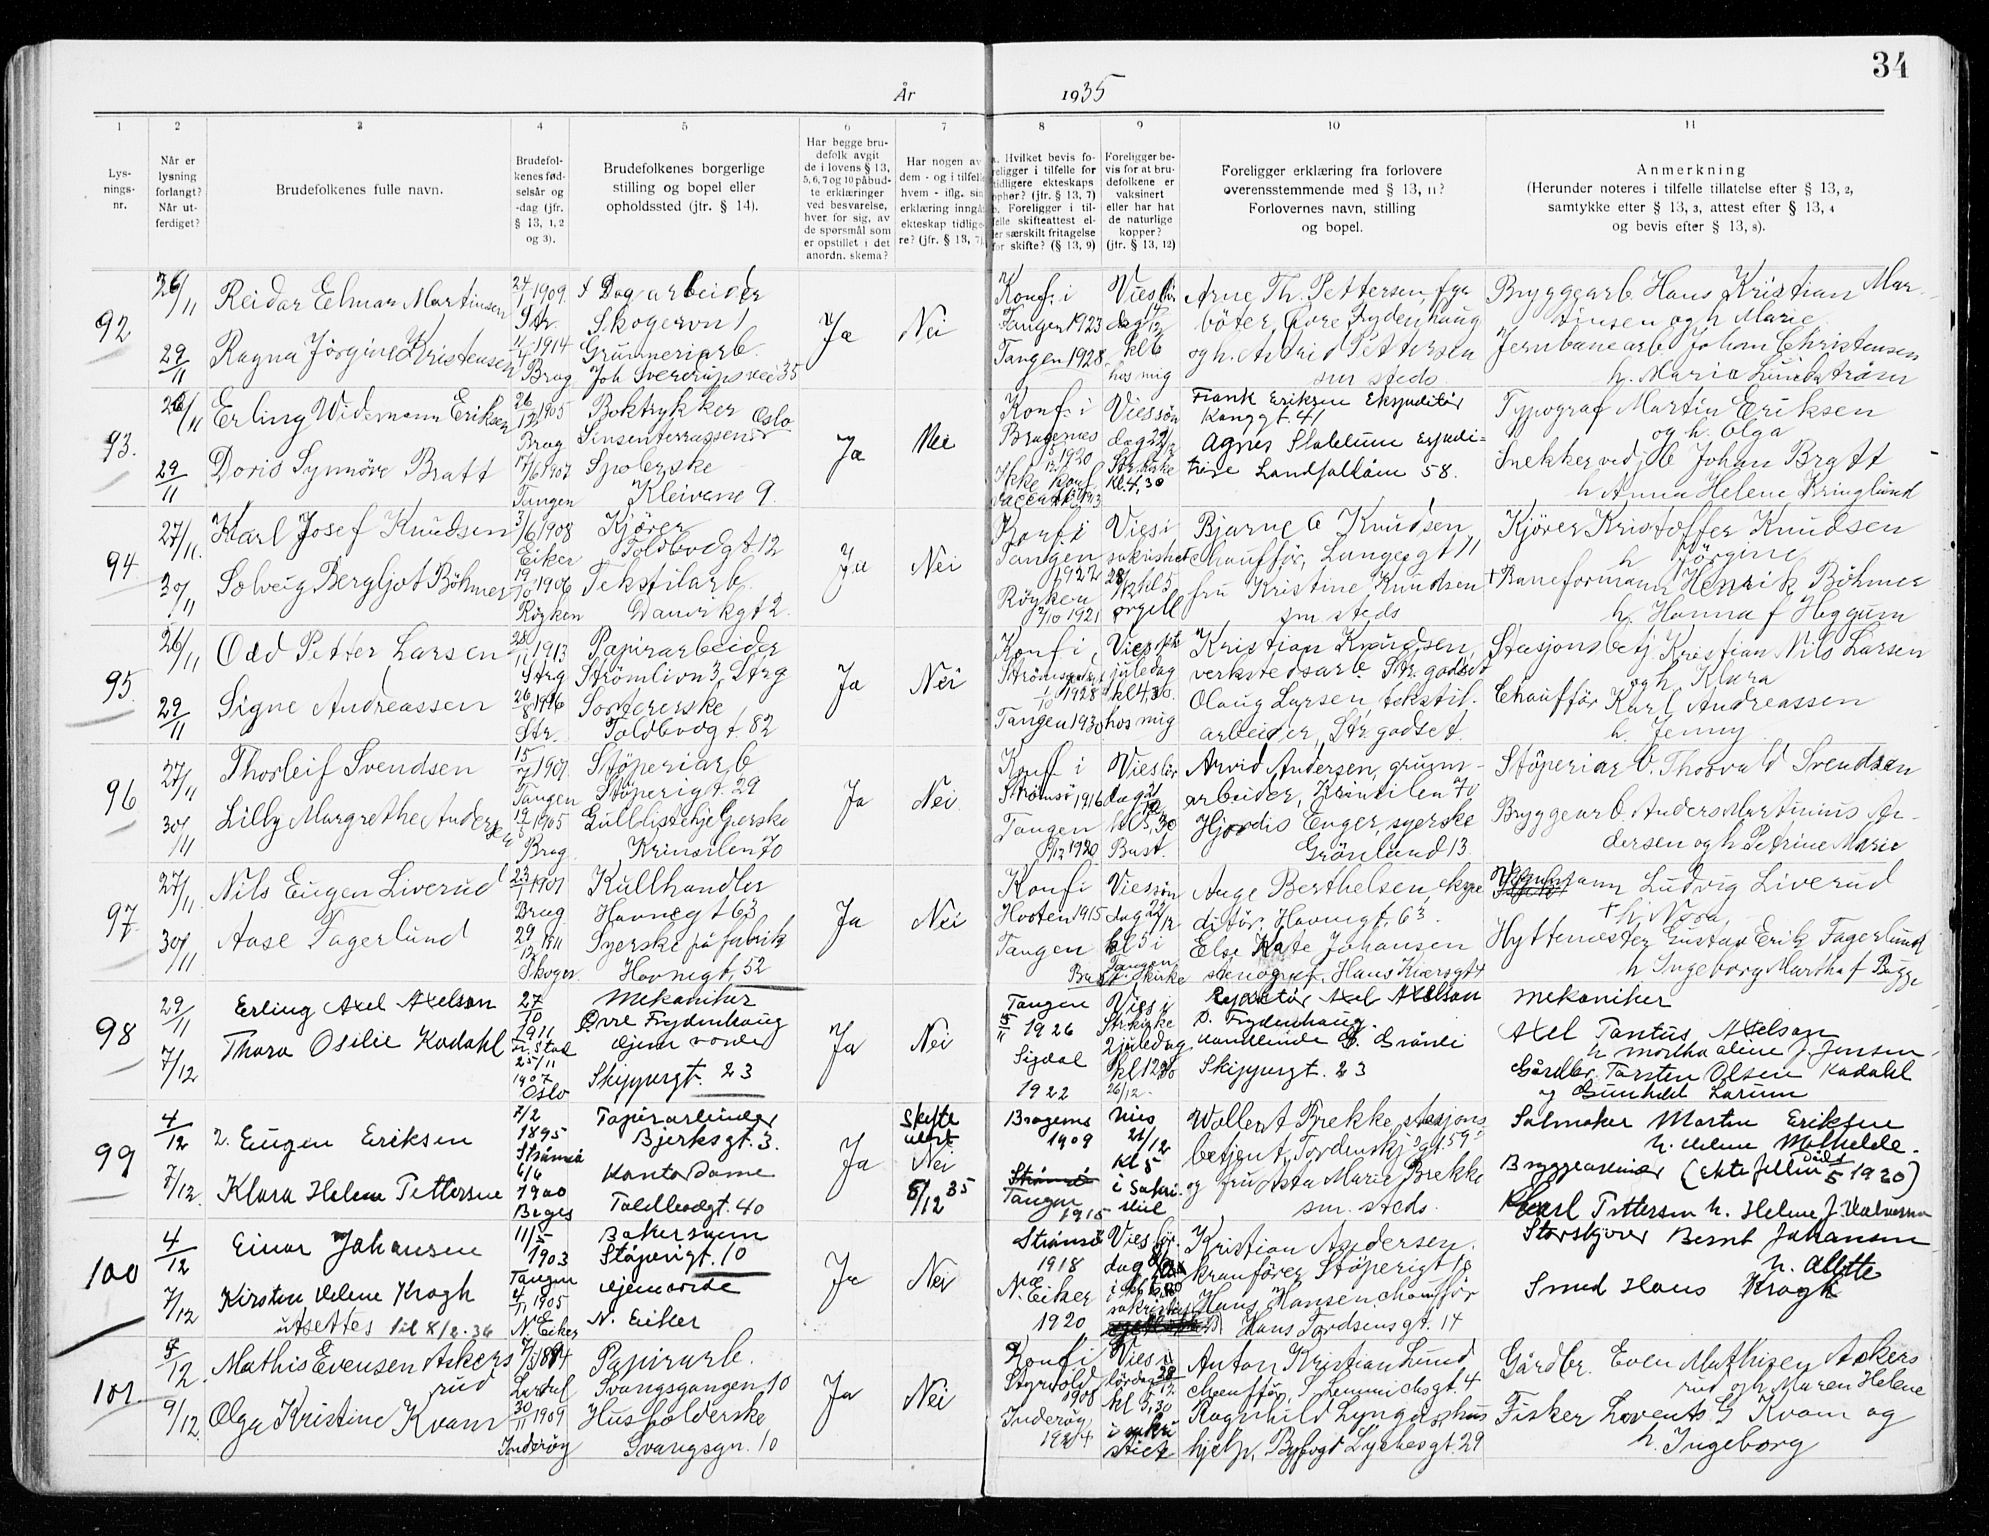 34
År 1935
1 2 3 4 5 6 7 8 9 10 11
Lys-
nings-
nr.
Når er
lysning
forlangt?
Når ut-
ferdiget?
Brudefolkenes fulle navn.
Brudefol-
kenes fød-
selsår og
-dag (jfr.
§ 13, 1, 2
og 3).
Brudefolkenes borgerlige
stilling og bopel eller
opholdssted (jfr. § 14).
Har begge bru-
defolk avgitt
de i lovens § 13,
5, 6, 7 og 10 påbud-
te erklæringer
ved besvarelse,
hver for sig, av
de spørsmål som
er opstillet i det
anordn. skema?
Har nogen av
dem - og i tilfelle
hvem - iflg. sin
erklæring inngått
ekteskap tidlige-
re? (jfr. § 13, 7)
a. Hvilket bevis fo-
religger i tilfelle for
tidligere ekteskaps
ophør? (jfr. § 13, 7)
b. Foreligger i til-
felle skifteattest el-
ler særskilt fritagelse
for skifte? (§ 13, 9)
Foreligger be-
vis for at bru-
defolkene er
vaksinert
eller har hat
de naturlige
kopper?
(jfr. § 13, 12)
Foreligger erklæring fra forlovere
overensstemmende med § 13, 11?
Forlovernes navn, stilling
og bopel.
Anmerkning
(Herunder noteres i tilfelle tillatelse efter § 13, 2,
samtykke efter § 13, 3, attest efter § 13, 4
og bevis efter § 13, 8).
92
26/11
29/11
Reidar Elmar Martinsen
Ragna Jörgine Kristensen
24/1 1909
Str.
1914
Brag
Dagarbeider
Skogervn 1
Grünneriarb.
Joh Sverdrupsvei 35
Ja
Nei
Konf. i
Tangen 1923
Tangen 1928
Vies lör
dag
kl 6
hos mig
Arne Th. Pettersen, fya
böter, Övre Frydenhaug
og h. Astrid Pettersen
sm steds
Bryggearb. Hans Kristian Mar-
tinsen og h Marie
Jernbanearb. Johan Christensen
h. Maria Lundström
93.
26/11
29/11
Erling Widemann Eriksen
Doris Synnöve Bratt
26/12 1905
Brag
17/6 1907
Tangen
Boktrykker
Sinsenterrassen Oslo
Spolerske
Kleivene 9.
Ja
Nei
Konf. i
Bragernes
1920
Ikke konf.
Vies sön
dag 22/12
Str. kirke
Kl. 4,30
Frank Eriksen Ekspeditör
Konggt. 41
Agnes Slablum Expedi-
trise Landfalløen 58.
Typograf Martin Eriksen
og h. Olga
Snekkersvedj b Johan Bratt
h Anna Helene Kringlund
94
27/11.
30/11
Karl Josef Knudsen
Solveig Bergljot Böhmer
3/6 1908
Eiker
19/10 1906
Röyken
Kjörer
Toldbodgt 12
Tekstilarb.
Danvikgt 2.
Ja
Nei
Konf i
Tangen
1922
Röyken
2/10 1921
Vies i
sakristiet
28/12 kl 5
orgell
Bjarne O Knudsen,
chauffør, Langesgt 11
fru Kristine Knudsen
sm steds
Kjörer Kristoffer Knudsen
h Jörgine
+ Baneformann Henrik Böhmer
h. Hanna f Heggum
95.
26/11
29/11
Odd Petter Larsen
Signe Andreassen
28/11 1913
Strg
26/8 1916
Str.
Papirarbeider
Strömlivn 3, Strg
Sortererske
Toldbodgt 82
Ja
Nei
Konf i
Strömsgodset
1/10 1928
Tangen 1930
Vies
juledag
kl 4,30.
hos mig
Kristian Knudsen,
verkstedsarb Str. godset
Olaug Larsen, tekstil-
arbeider, Str. godset.
Stasjonsbetj. Kristian Nils Larsen
og h. Klara
Chauffør Karl Andreassen
h. Jenny
96
27/11
30/11
Thorleif Svendsen
Lilly Margrethe Andersen
15/7 1901
Tangen
1905
Brag.
Støperiarb
Støperigt 29
Gulllistehjelperske
Krinsilen 70
Ja
Nei.
Konf i
Strømsø 1916
Tangen
1920
Vies lör
dag 21/12
kl 5,30
Bust.
Arvid Andersen, grunn-
arbeider, Krinsilen 70
Hjördis Enger, syerske
Grönland 13.
Støperiarb. Thorvald Svendsen
Bryggearb. Anders Martinius An-
dersen og h Petrine Marie
97.
27/11
30/11
Nils Eugen Liverud
Aase Fagerlund
23/1 1901
Brag
29/12 1911
Skoger
Kullhandler
Havnegt 63
Syerske på fabrikk
Havnegt. 52
Ja
Nei
Konf i
Hvoten 1915
Tangen
Vies sön
dag 22/12
kl 5 i
Tangen
kirke
Aage Berthelsen, ekspe
ditör, Havnegt. 63.
Else Kate Johansen
stenograf, Hans Kiærsgt 4
Ludvig Liverud
+ h. Nora,
Hyttemester Gustav Erik Fagerlund
h Ingeborg Martha f Bugge
98
29/11
7/12
Erling Axel Axelsen
Thora Osilie Kadahl
27/10
1911
25/11
1907
Oslo
Mekaniker
Övre Frydenhaug
Hjemmeværende
Skippergt. 23
Ja
Nei
Tangen
1926
Sigdal
1922
Vies i
Str. kirke
2 juledag
26/12.
Axel Axelsen
O. Frydenhaug.
Skippergt. 23
Mekaniker
Axel Pontus Axelsen
h Martha Oline f. Jensen.
Gårdbr. Torsten Olsen Kadahl
og Gunhild Larum
99
4/12
7/12.
2. Eugen Eriksen
Klara Helene Pettersen
7/2
1895
Strömsö
6/6
1900
Papirarbeider
Bjerksgt. 3.
Kontordame
Toldbodgt. 40
Ja
Skifte
attest
Nei
5/12 35
Bragernes
1909
Tangen
1915
Vies
21/12
Kl 5
i Sakri-
stiet
Brekke, stasjons
betjent, Tordenskj.gt 59
og fru Asta Marie Brekke
sm. steds.
Salmaker Martin Eriksen
h. Helene Mathilde.
Bryggearbeider (ektefellen død 1920)
Karl Pettersen h. Helene f. Halvorsen
100
4/12
7/12
Einar Johansen
Kirsten Helene Kragh
utsettes til 8/2-36
11/5
1903
Tangen
4/11 1905
N. Eiker
Bakersvenn
Støperigt. 10
Hjemmeværende
N. Eiker
Ja
Nei
Strömsö
1918
N. Eiker
1920
Vies lör-
dag
Kristian Andersen.
kranfører Støperigt 10
Hans Hansen, chauffør
Hans Tordsensgt. 14
Storskjører Bernt Johansen
h. Alette
Smed Hans Kragh
101
5/12
9/12.
Mathis Evensen Askers
rud
Olga Kristine Kvam
7/3 1894
Lardal
30/11 1909
Inderöy
Papirarb.
Svangsgangen 10
Husholderske
Svangsgn. 10
Ja
Nei
Konf i
Styrvold
1908
Inderøy
1924
Vies i
lørdag 28/12
kl 5,30
i sakri
stiet
Anton Kristian Lund
chauffør, S. Lemmichsgt. 4
Ragnhild Lyngås hus
hjelp, Byfogd Lyches gt. 29
Gårdbr. Even Mathisen Askers
rud og h. Maren Helene
Fisker Lorents G Kvam og
h. Ingeborg